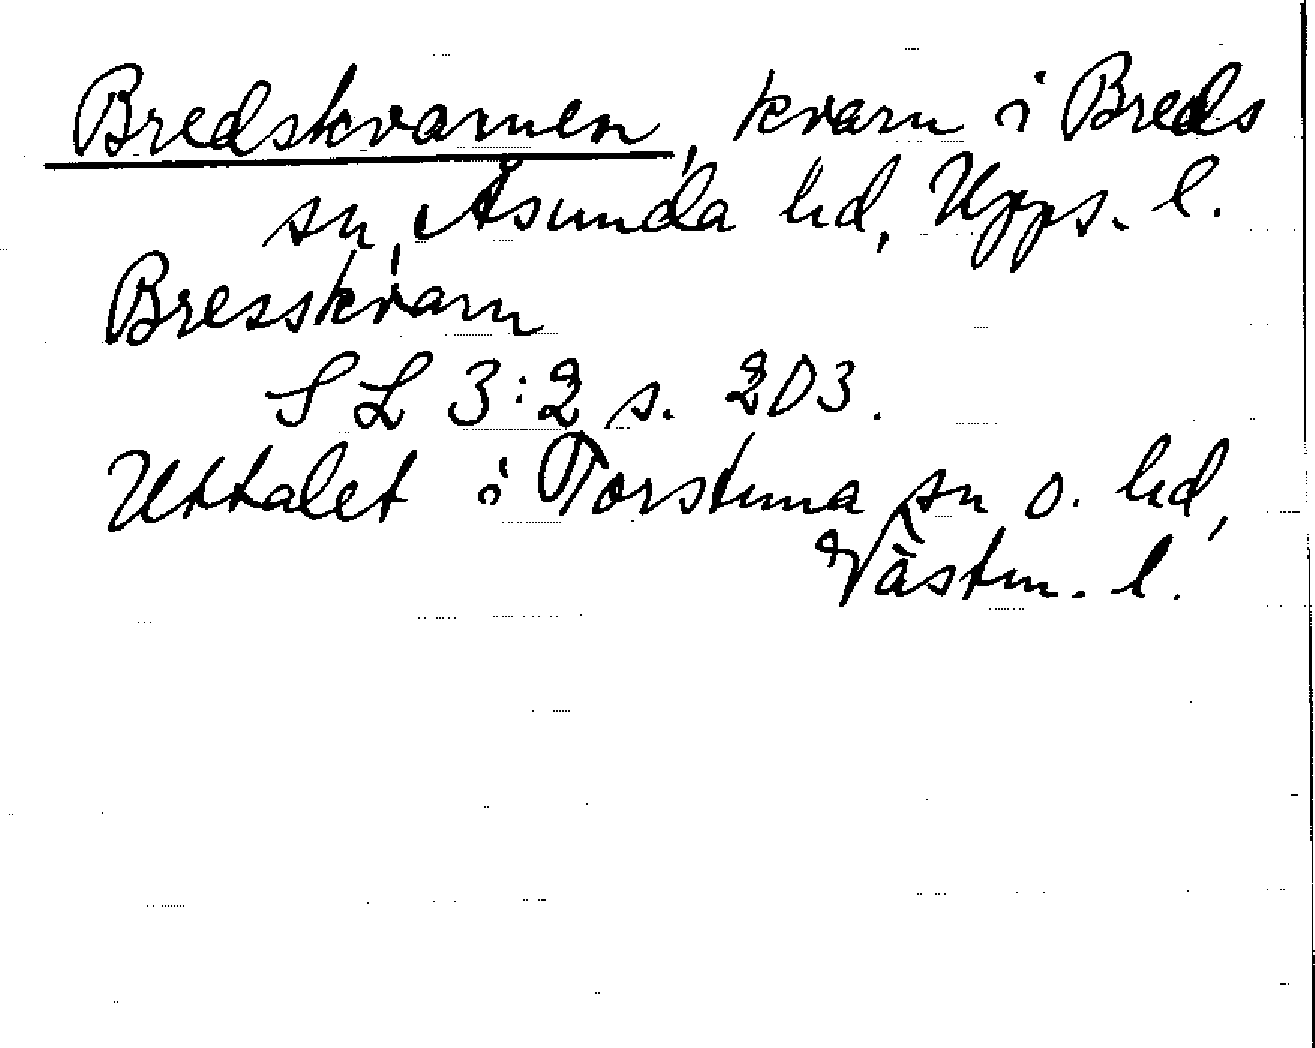 Bredskvarnen, kvarn i Breds
sn, Åsunda hd, Upps. l.
Bresskvarn
SL 3:2 s. 203.
Uttalet i Torstuna sn o. hd,
Västm. l.